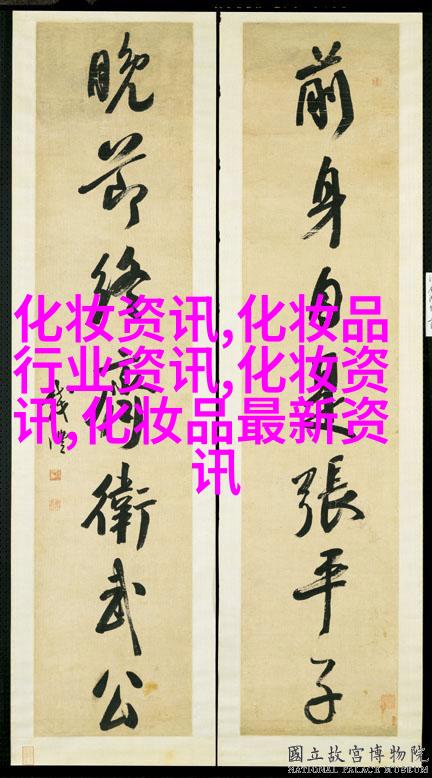 前身自是張平子
晚節終衛武公
錢灃
化妆资讯,化妆品
行业资讯,化妆资
讯,化妆品最新资
讯
國立故宮博物院
NATIONAL PALACE MUSEUM